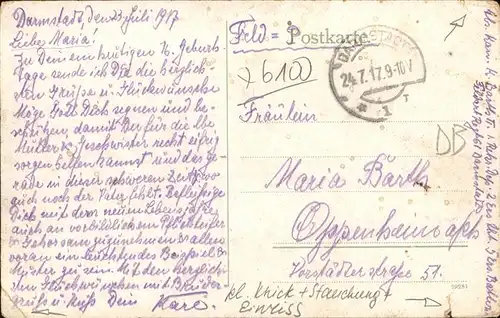 Darmstadt, den 23 Juli 1917
Liebe Maria!
Zu Deinem heutigen 16. Geburts
Tage sende ich Dir die herzlich-
sten Grüße u. Glückwünsche
Möge Gott Dich segnen und be-
schützen, damit Du für die lbe
Mutter u. Geschwister recht eifrig
sorgen helfen kannst und das ge-
rade in dieser schweren Zeit, wo
auch noch der Vater fehlt. Befleißige
Dich mit dem neuen Lebensjahre
auch an vorbildlichem
Gehorsam zuzunehmen u. allen
voran ein leuchtendes Beispiel u.
Muster zu sein. Mit den herzlich-
sten Glückwünschen mit Bruder-
gruß u. Kuß Dein Karl.
Feld= Postkarte
*6100
DARMSTADT
24.7.17.9-10V
* 1
Fräulein
Maria Barth
Oppenheim a/Rh
Vorstädterstraße 51.
DB
29281
kl. Knick + Stauchung +
Einriss